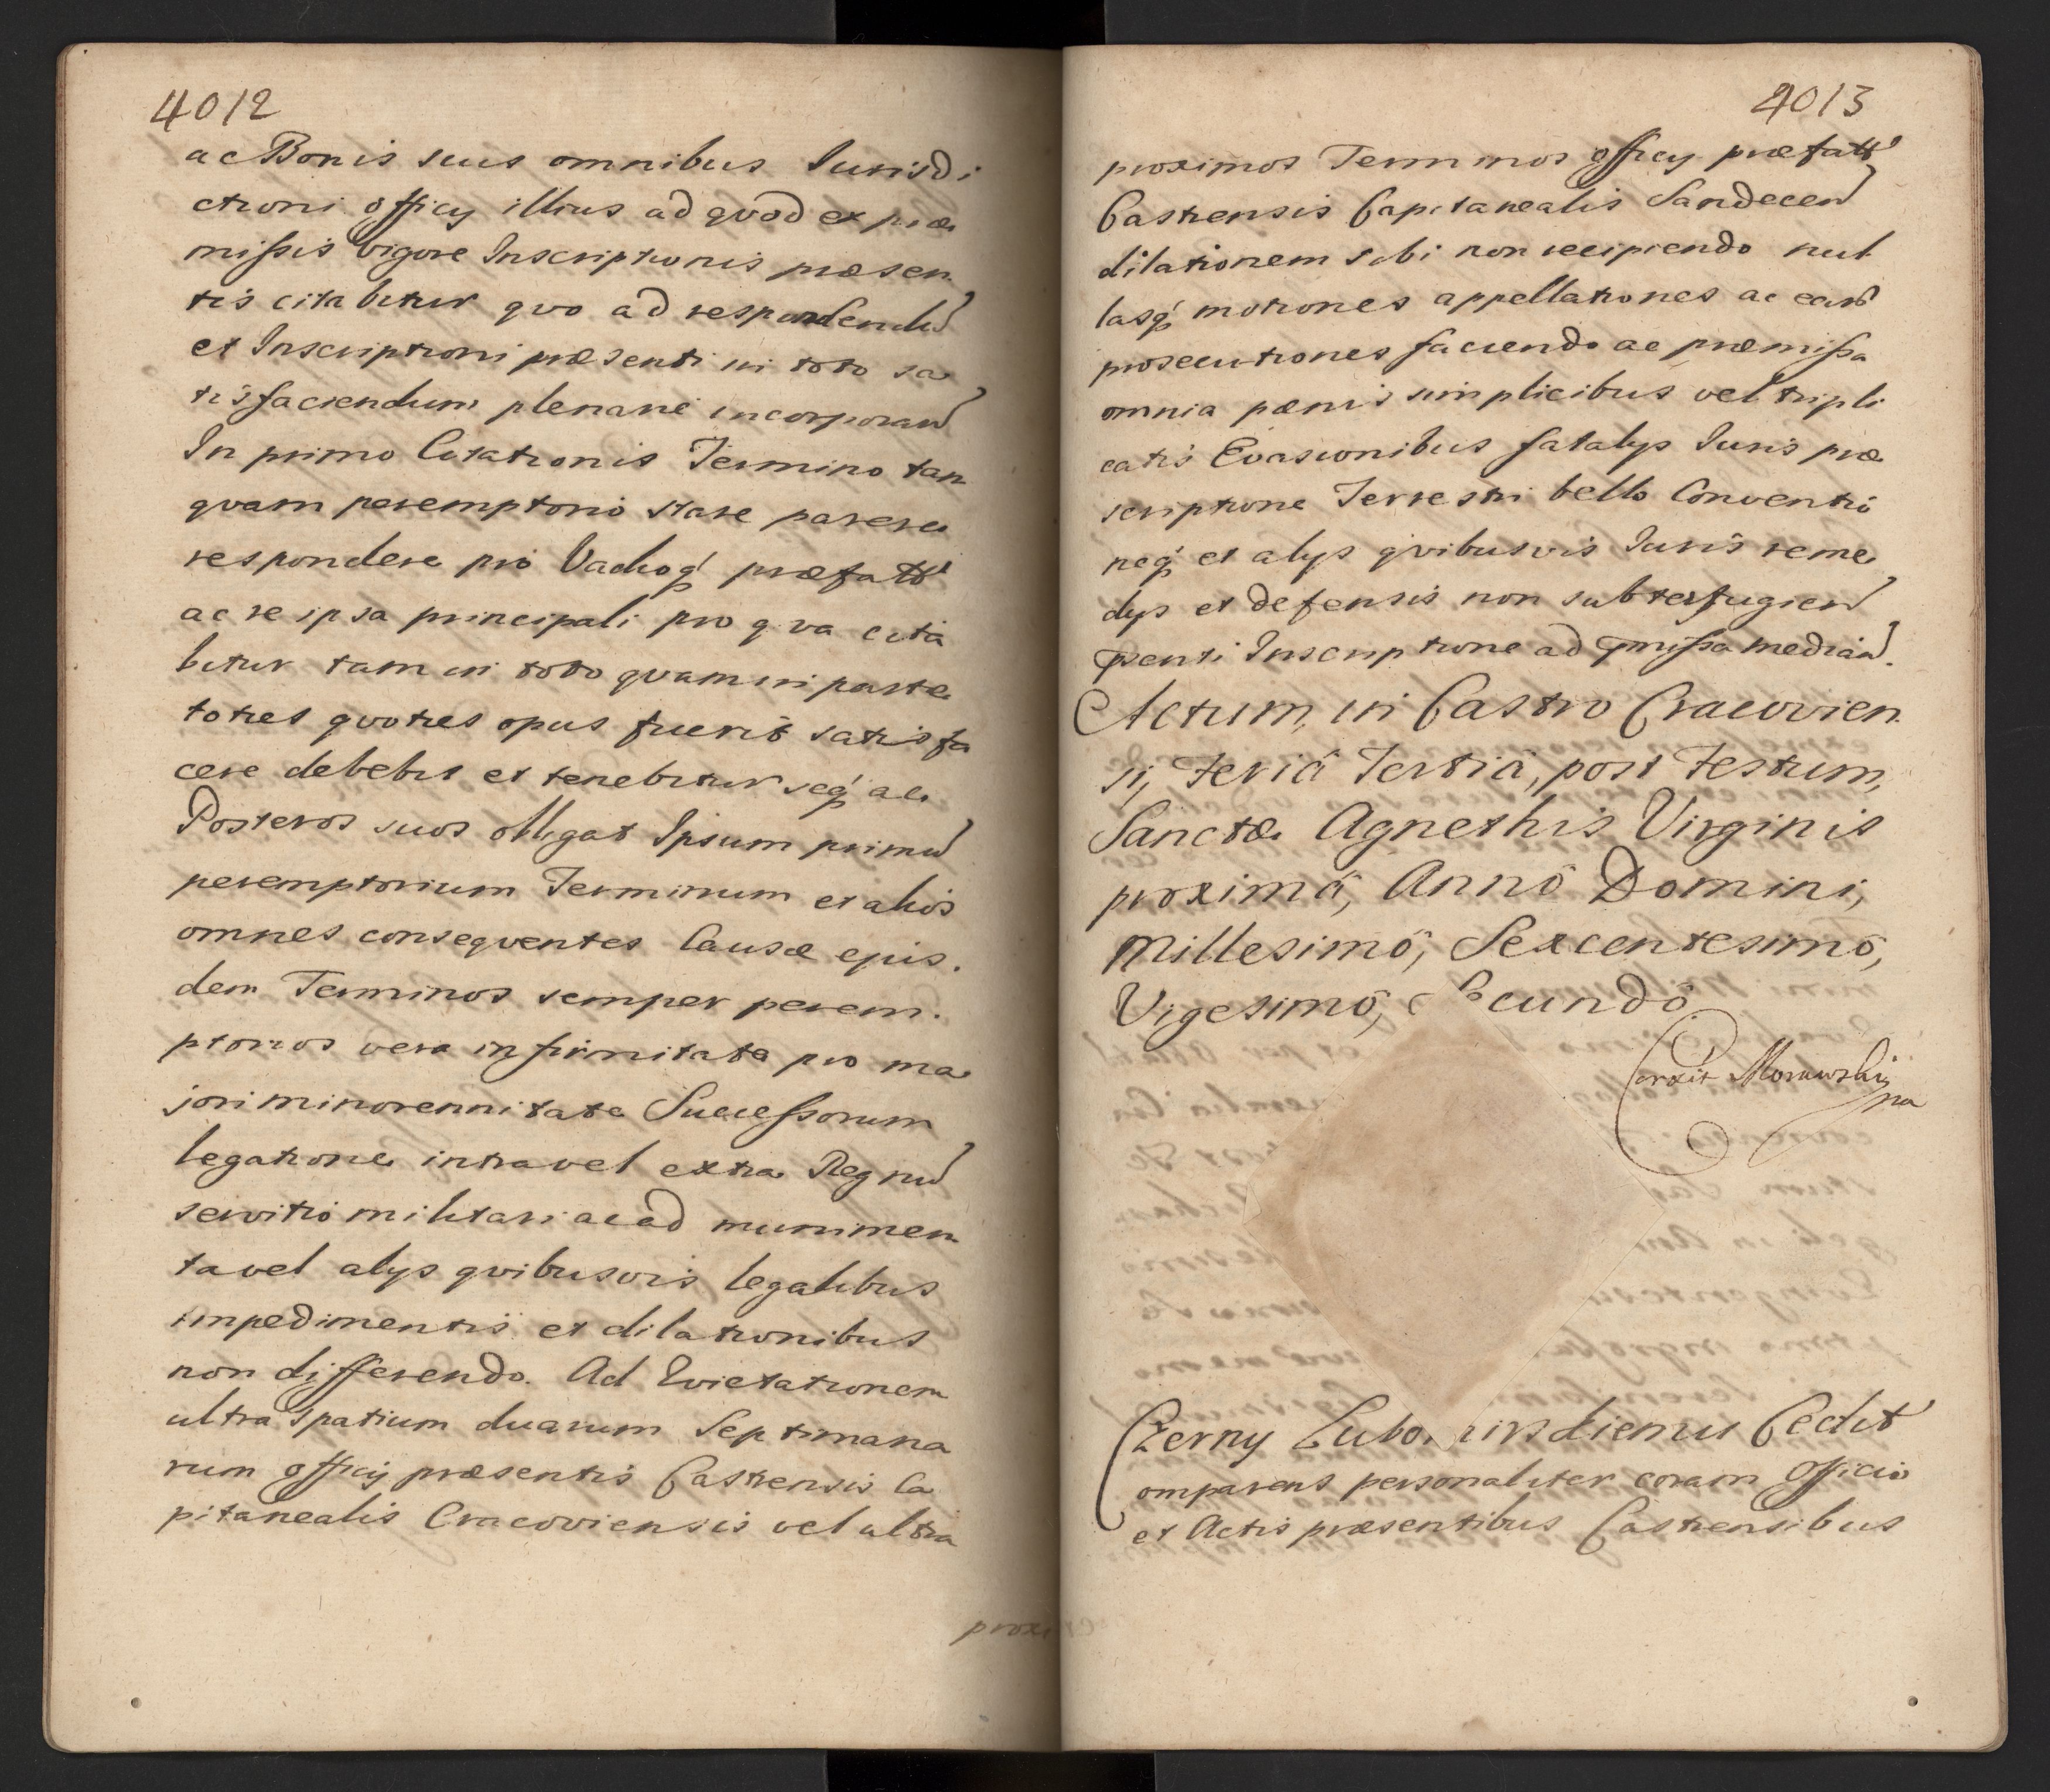 4012
ac Bonis suis omnibus Jurisdi
ctioni officij illius ad qvod ex præ
missis vigore Inscriptionis præsen
tis citabitur qvo ad respondend
et Inscriptioni præsenti in toto sa
tisfaciendum plenariè incorporand
In primo Citationis Termino tan
qvam peremptorio stare parere
respondere pro Vadioq præfatt
ac re ipsa principali pro qva cita
bitur tam in toto qvam in parte
toties qvoties opus fuerit satisfa
cere debebit et tenebitur seq ac
Posteros suos obligat Ipsum primu
peremptorium Terminum et alios
omnes conseqventes Causæ ejus.
dem Terminos semper perem.
ptorios vera infirmitate pro ma
jori minorennitate Successorum
legatione intra vel extra Regnu
servitio militari ac ad munimen
ta vel alys qvibusvis legalibus
impedimentis et dilationibus
non differendo. Ad Evictationem
ultra spatium duarum Septimana
rum officij præsentis Castrensis Ca
pitanealis Cracoviensis vel ultra
proxi
4013
proximos Terminos officij præfatt
Castrensis Capitanealis Sandecen
dilationem sibi non recipiendo nul
lasq motiones appellationes ac earu
prosecutiones faciendo ac præmissa
omnia pænis simplicibus vel tripli
catis Evasionibus fatalys Juris præ
scriptione Terrestri bello Conventio
neq et alys qvibusvis Juris reme
dys et defensis non subterfugien
psenti Inscriptione ad pmissa median.
Actum, in Castro Cracovien
si, feriâ Tertiâ, post Festum,
Sanctæ Agnethis Virginis
proximâ, Annô Domini,
Millesimô, Sexcentesimô,
Vigesimô, Secundô
Corexit Morawski
mp
Czerny Lubomirskiemu Cedit
Comparens personaliter coram Officio
et Actis præsentibus Castrensibus